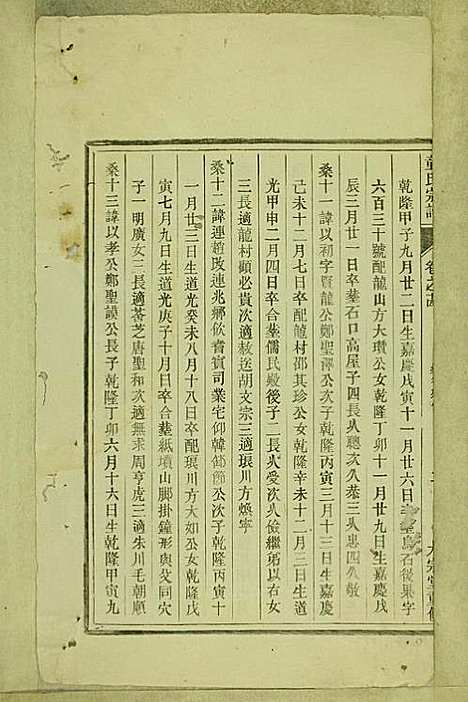 章氏宗譜
乾隆甲子九月廿二日生嘉慶戊寅十一月廿六日卒墓烏石後巢字
六百三十號配龍山方大瓚公女乾隆丁卯十一月廿九日生嘉慶戊
辰三月廿一日卒墓石口高屋子四長人聰次久恭三人思四久敬
桑十一諱以初字賢龍公鄭聖澤公次子乾隆丙寅三月十三日生嘉慶
己未十二月七日卒配龍村邵其珍公女乾隆辛未十二月三日生道
光甲申二月四日卒合墓儒民殿後子二長人受次人儉繼躬以右女
三長適龍村頭必貴次適赦送胡文宗三適琅川方煥寧
桑十二諱連趙改連兆鄉飲耆賓司業宅仰韓節公次子乾隆丙寅十
一月廿三日生道光癸未八月十八日卒配琅川方大如公女乾隆戊
寅七月九日生道光庚子十月日卒合墓紙墳山腳掛鐘形與父同穴
子一明廣女三長適蓉芝唐聖和次適無求周亨虎三適朱川毛朝順
桑十三諱以孝公鄭聖謨公長子乾隆丁卯六月十六日生乾隆甲寅九